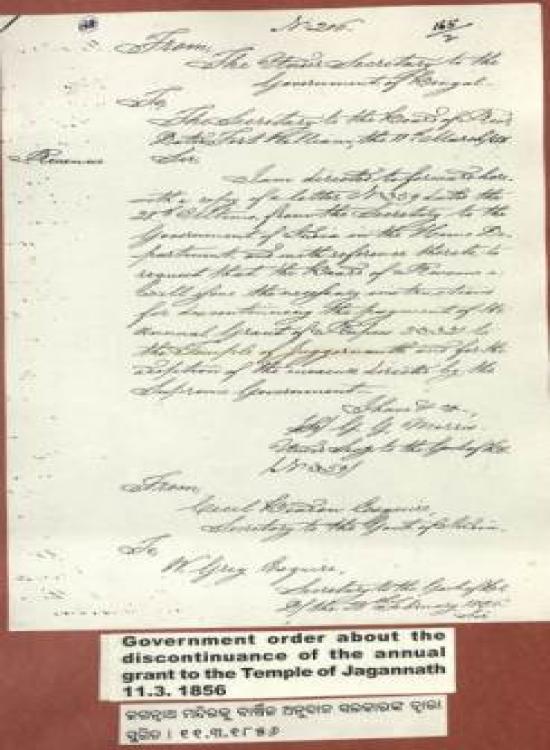 No 206.
From,
The Under Secretary to the
Government of Bengal.
To,
The Secretary to the Board of
Dated Fort William, the 11th March
Revenue
Sir,
I am directed to forward here-
with a copy of a letter No 359 dated the
28th Ultimo, from the Secretary to the
Government of India in the Home De-
partment and with reference thereto to
request that the Board of Revenue
will give the necessary instructions
for discontinuing the payment of the
Annual Grant of Rupees to
the Temple of Juggernauth and for the
adoption of the measures directed by the
Supreme Government.
I have &c.,
Under Secy to the Govt of
No 359
From,
Cecil Beadon Esquire,
Secretary to the Govt of India.
To,
W. Grey Esquire,
Secretary to the Govt of
February
Sir
Government order about the
discontinuance of the annual
grant to the Temple of Jagannath
11.3. 1856
ଜଗନ୍ନାଥ ମନ୍ଦିରକୁ ବାର୍ଷିକ ଅନୁଦାନ ସରକାରଙ୍କ ଦ୍ୱାରା
ସ୍ଥଗିତ । ୧୧.୩.୧୮୫୬